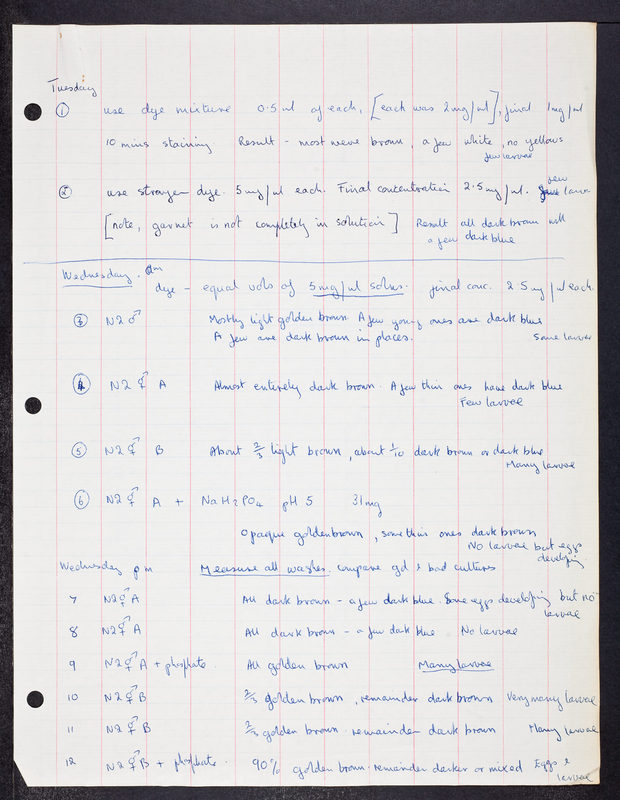 Tuesday
① use dye mixture 0.5 ml of each, [each was 2mg/ml], final 1mg/ml
10 mins staining Result - most were brown, a few white, no yellows
few larvae
② use stronger dye. 5mg/ml each. Final concentration 2.5mg/ml. few larvae
[note, garnet is not completely in solution] Result all dark brown with
a few dark blue
Wednesday. am
dye - equal vols of 5mg/ml solns. final conc. 2.5mg/ml each.
③ N2 ♂ Mostly light golden brown A few young ones are dark blue
A few are dark brown in places. Some larvae
④ N2 ⚥ A Almost entirely dark brown. A few thin ones have dark blue
Few larvae
⑤ N2 ⚥ B About 2/3 light brown, about 1/10 dark brown or dark blue
Many larvae
⑥ N2 ⚥ A + NaH2PO4 pH 5 31mg
Opaque golden brown, some thin ones dark brown
No larvae but eggs
developing
Wednesday pm Measure all washes. compare gd & bad cultures
7 N2 ⚥ A All dark brown - a few dark blue. Some eggs developing but no
larvae
8 N2 ⚥ A All dark brown - a few dark blue No larvae
9 N2 ⚥ A + phosphate. All golden brown Many larvae
10 N2 ⚥ B 2/3 golden brown, remainder dark brown Very many larvae
11 N2 ⚥ B 2/3 golden brown. remainder dark brown Many larvae
12 N2 ⚥ B + phosphate. 90% golden brown. remainder darker or mixed Eggs &
larvae